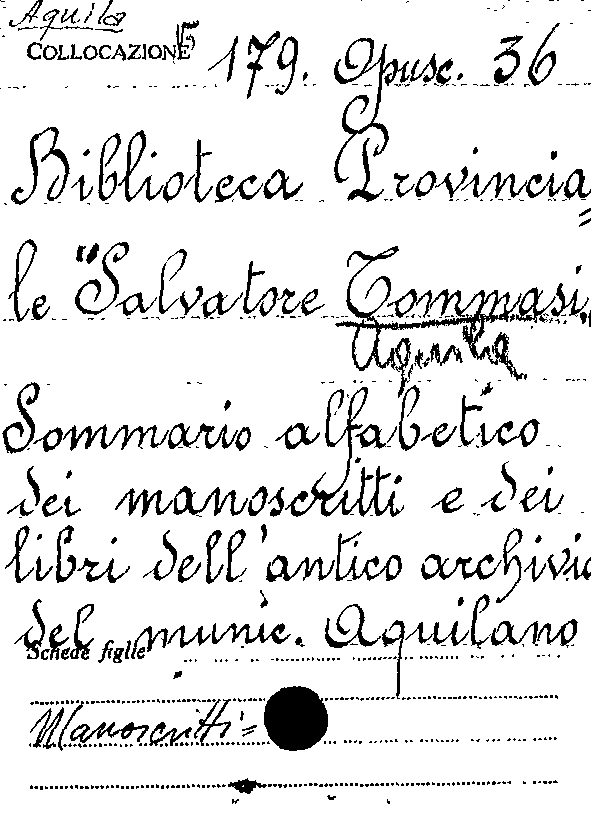 Aquila
COLLOCAZIONE 179. Opusc. 36
Biblioteca Provincia=
le "Salvatore Tommasi"
Aquila
Sommario alfabetico
dei manoscritti e dei
libri dell'antico archivio
del munic. Aquilano
Schede figlie
Manoscritti =